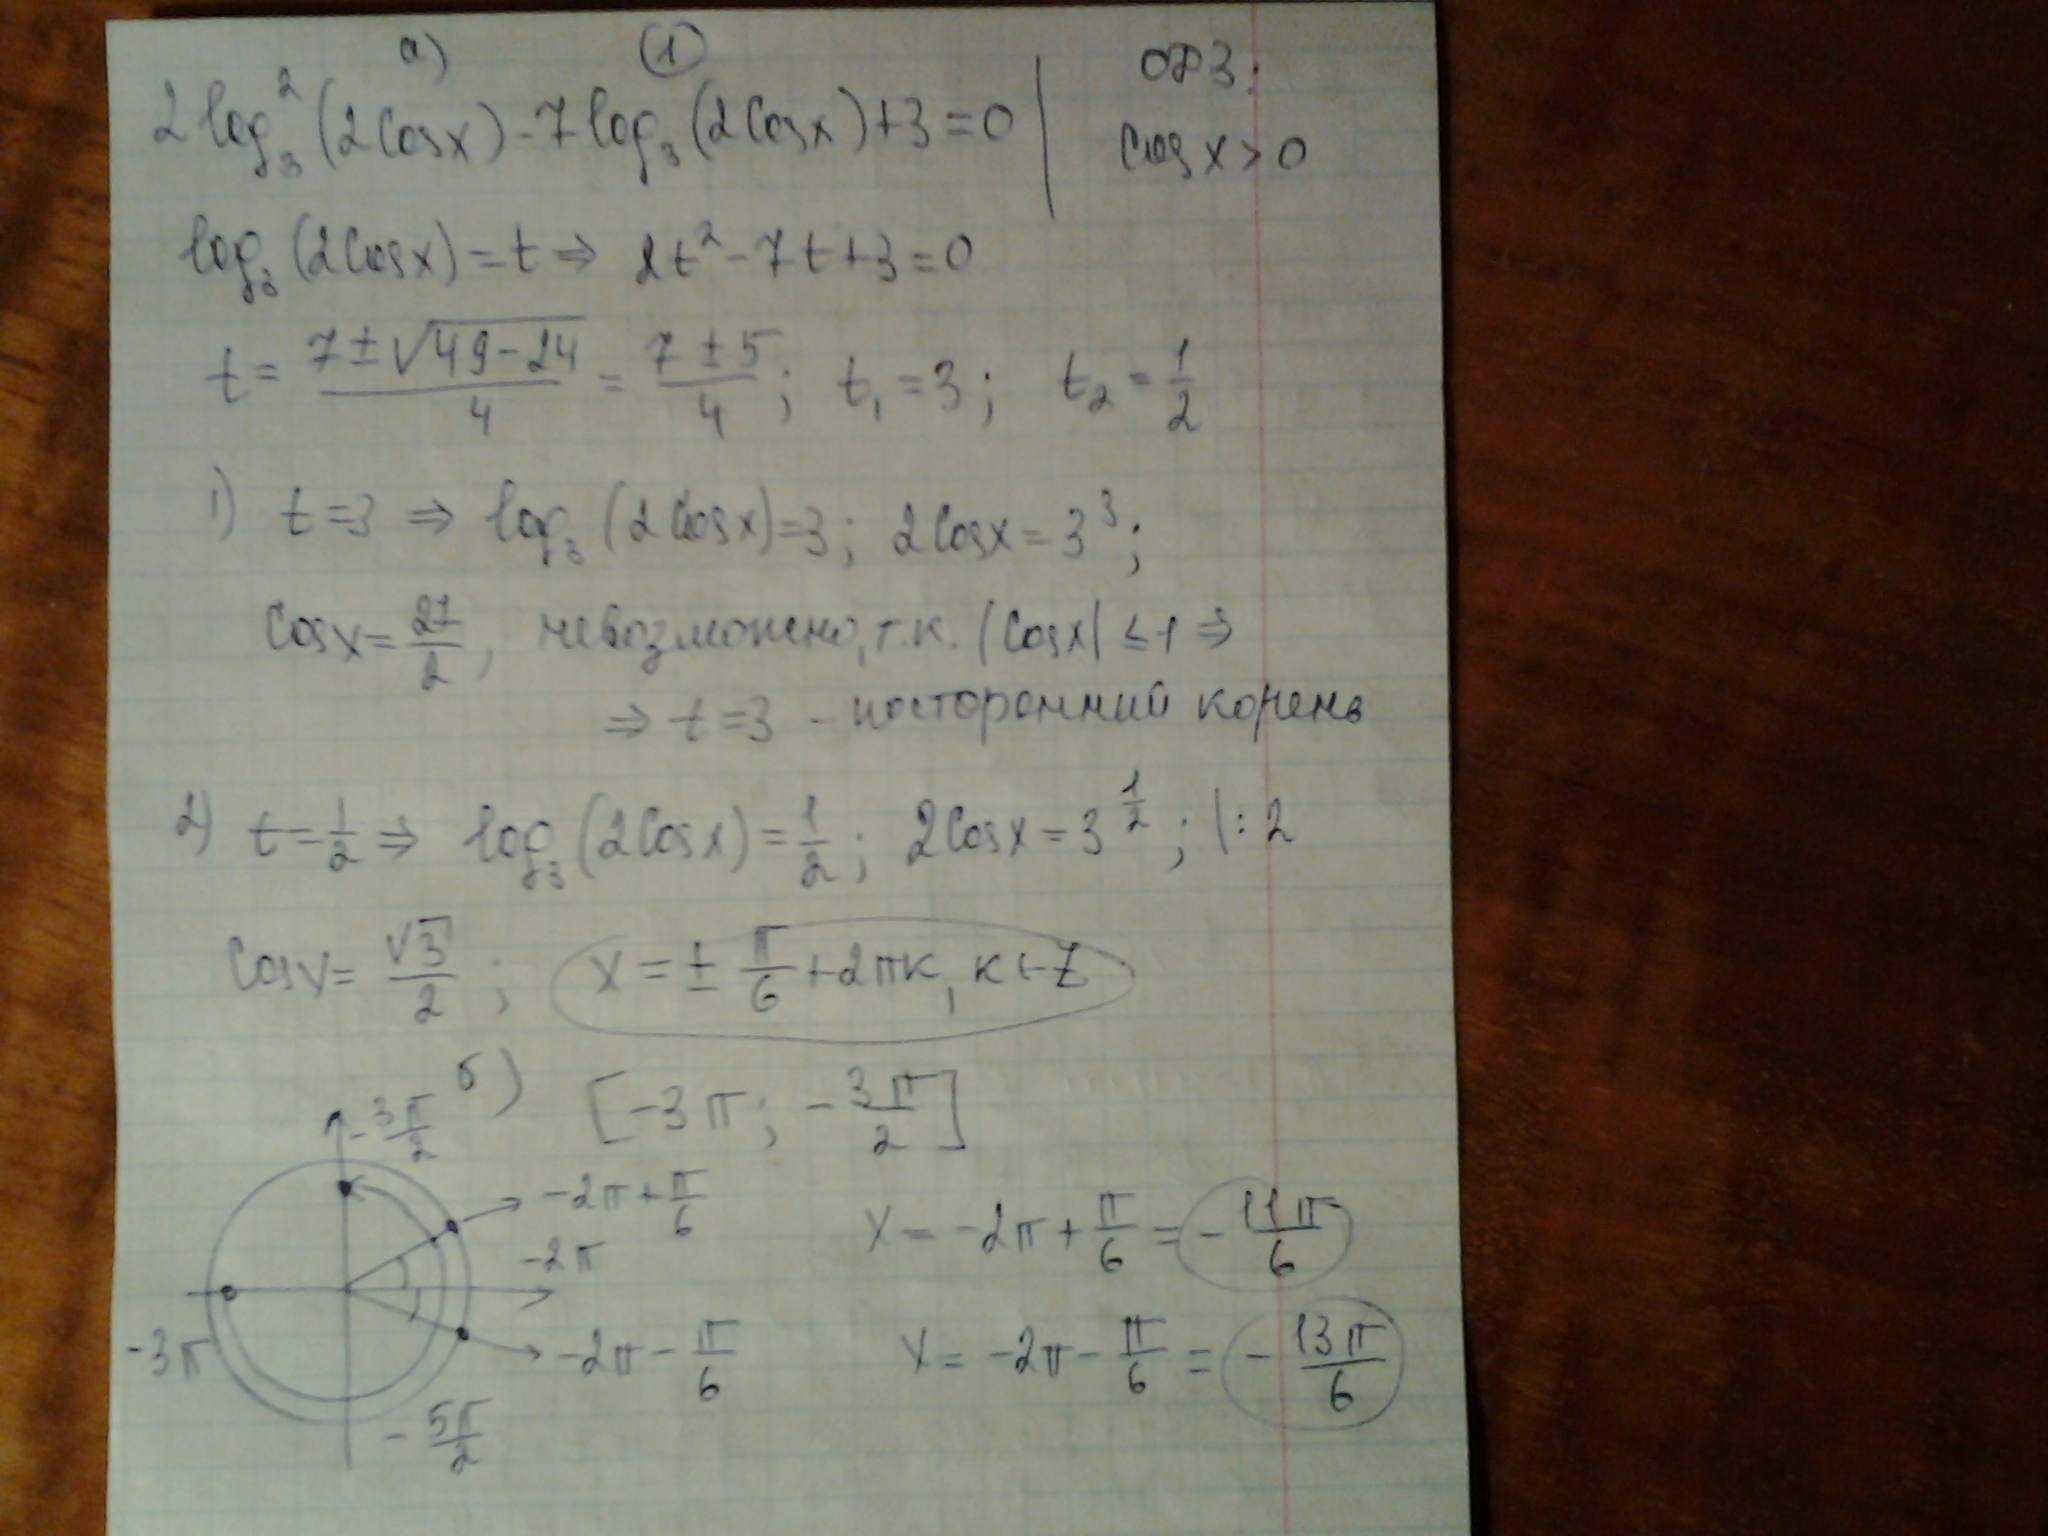 а) ①
2log₃²(2Cosx)-7log₃(2Cosx)+3=0 | ОДЗ:
Cosx>0
log₃(2Cosx)=t ⇒ 2t²-7t+3=0
t = (7±√(49-24))/4 = (7±5)/4; t₁=3; t₂=1/2
1) t=3 ⇒ log₃(2Cosx)=3; 2Cosx=3³;
Cosx=27/2, невозможно, т.к. |Cosx|≤1 ⇒
⇒ t=3 - посторонний корень
2) t=1/2 ⇒ log₃(2Cosx)=1/2; 2Cosx=3^(1/2); |:2
Cosx=√3/2; x=±π/6+2πк, к∈Z
б) [-3π; -3π/2]
-3π/2
-2π+π/6
x=-2π+π/6=-11π/6
-2π
-3π
-2π-π/6
x=-2π-π/6=-13π/6
-5π/2